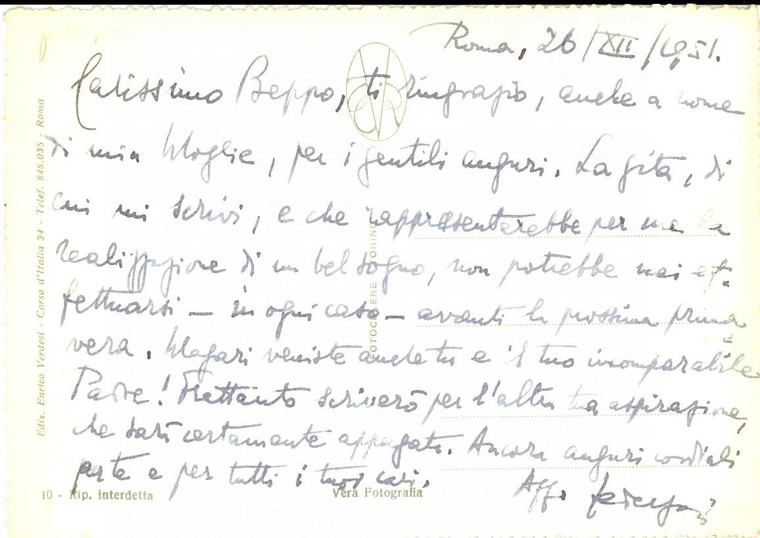 Roma, 26/XII/1951.
Carissimo Beppo, ti ringrazio, anche a nome
di mia Moglie, per i gentili auguri. La gita, di
cui mi scrivi, e che rappresenterebbe per me la
realizzazione di un bel sogno, non potrebbe mai ef=
fettuarsi — in ogni caso — avanti la prossima prima=
vera. Magari veniste anche tu e il tuo incomparabile
Padre! Frattanto scriverò per l'altra tua aspirazione,
che sarà certamente appagata. Ancora auguri cordiali
a te e per tutti i tuoi cari.
Aff.
10 - Rip. interdetta
Vera Fotografia
Ediz. Enrico Verdesi - Corso d'Italia 34 - Telef. 848.035 - Roma
FOTOCELERE TORINO